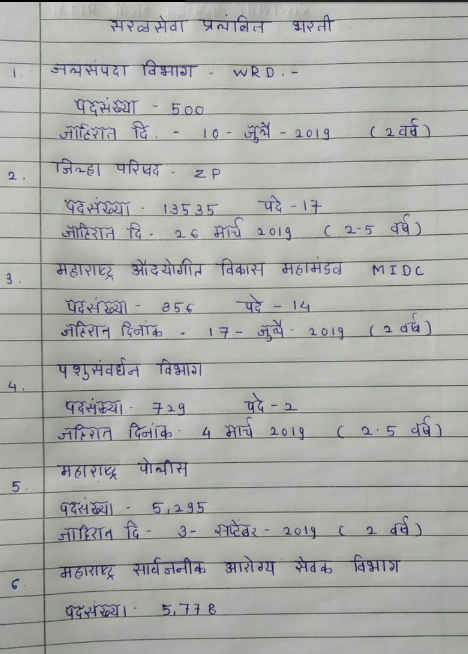 सरळसेवा प्रलंबित भरती
1. जलसंपदा विभाग - WRD. -
पदसंख्या - 500
जाहिरात दि. - 10 - जुलै - 2019 ( 2 वर्ष )
2. जिल्हा परिषद - ZP
पदसंख्या - 13535 पदे - 17
जाहिरात दि - 26 मार्च 2019 ( 2.5 वर्ष )
3. महाराष्ट्र औदयोगीत विकास महामंडळ MIDC
पदसंख्या - 856 पदे - 14
जहिरात दिनांक - 17 - जुलै - 2019 ( 2 वर्ष )
4. पशुसंवर्धन विभाग
पदसंख्या - 729 पदे - 2
जहिरात दिनांक - 4 मार्च 2019 ( 2.5 वर्ष )
5. महाराष्ट्र पोलीस
पदसंख्या - 5,295
जाहिरात दि - 3 - सप्टेंबर - 2019 ( 2 वर्ष )
6. महाराष्ट्र सार्वजनीक आरोग्य सेवक विभाग
पदसंख्या - 5,778